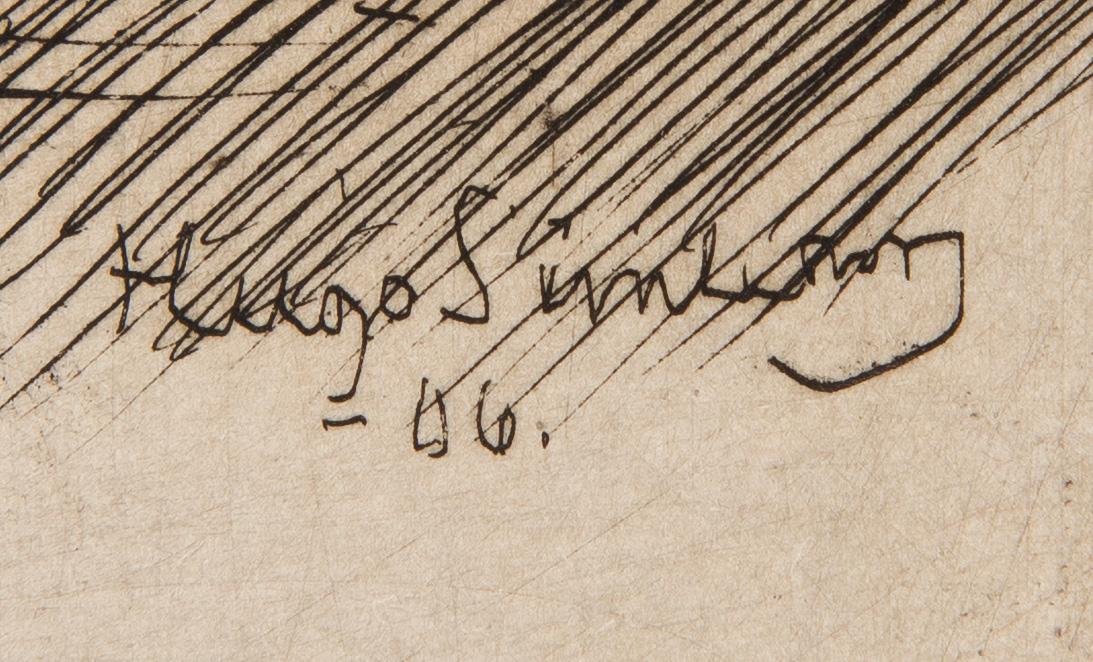 Hugo Simberg
- 06.